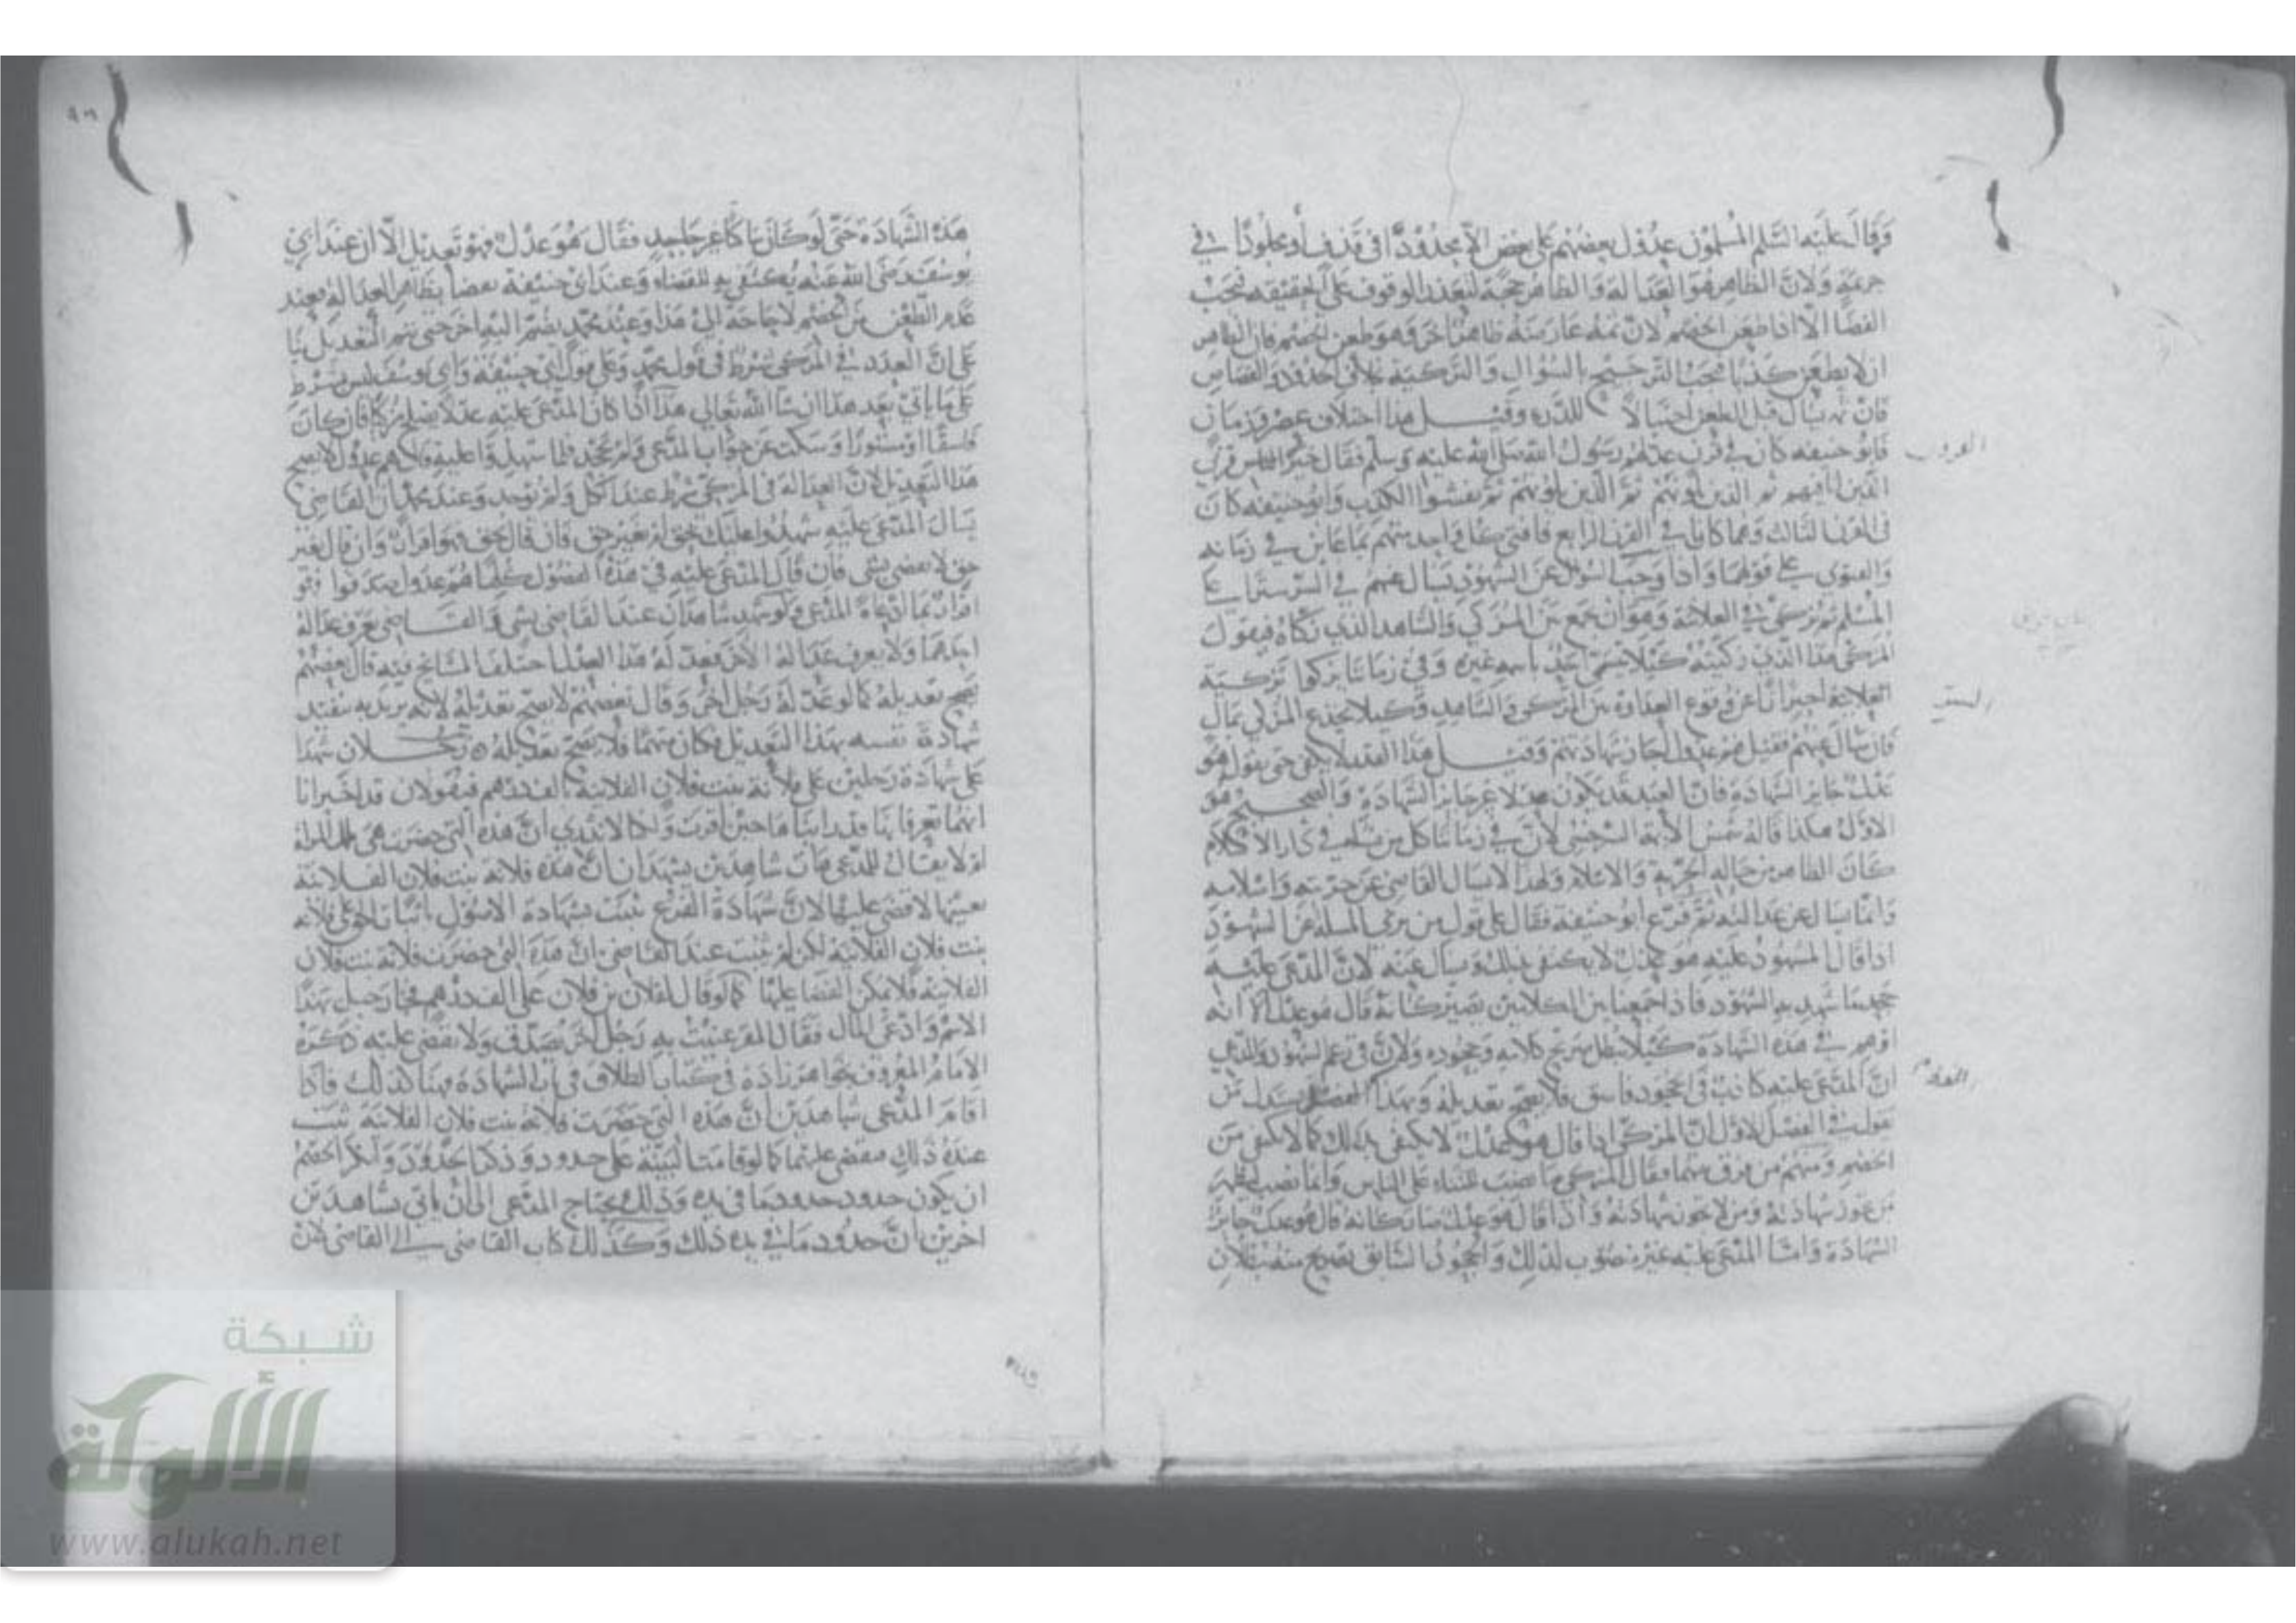 وقال عليه السلم المسلمون عدول بعضهم على بعض الا محدودا في قذف او مجلودا في
جريمة ولان الظاهر هو العدالة والظاهر حجة لتعذر الوقوف على الحقيقة فيجب
القضا الا اذا طعن الخصم لان ثمة عارضه ظاهرا اخر وهو طعن الخصم فان الظاهر
ان لا يطعن كذبا فيجب الترجيح بالسؤال والتزكية بخلاف الحدود والقصاص
فان ثم يسال قبل الطعن احتيالا للدرء وقيل هذا اختلاف عصر وزمان
فابو حنيفه كان في قرب عدلهم رسول الله صلى الله عليه وسلم فقال خير الناس قرني
الذين انا فيهم ثم الذين يلونهم ثم الذين يلونهم ثم يفشوا الكذب وابو حنيفه كان
في القرن الثالث وهما كانا في القرن الرابع فافتى كل واحد منهم بما عاين في زمانه
والفتوى على قولهما واذا وجب السؤال عن الشهود يسال عنهم في السر سترا على
المسلم ثم يزكى في العلانية وهو ان يجمع بين المزكي والشاهد الذي زكاه فيقول
المزكى هذا الذي زكيته كيلا يتسمى احد باسم غيره وفي زماننا تركوا تزكية
العلانية احترازا عن وقوع العداوة بين المزكى والشاهد وكيلا يخدع المزكي بمال
فان سال عنهم فقيل هم عدول جاز شهادتهم وقيل هذا القدر لا يكفي حتى يقول هو
عدل جايز الشهادة فان العبد قد يكون عدلا غير جايز الشهادة والصحيح هو
الاول هكذا قاله شمس الايمة السرخسي لان في زماننا كل من نشا في دار الاسلام
كان الظاهر من حاله الحرية والاسلام ولهذا لا يسال القاضي عن حريته واسلامه
وانما يسال عن عدالته ثم فرع ابو حنيفة فقال على قول من يرى المسلة عن الشهود
اذا قال المشهود عليه هو عدل لا يكتفى بذلك ويسال عنه لان المدعى عليه
جحد ما شهد به الشهود فاذا جمعنا بين الكلامين يصير كانه قال هو عدل الا انه
اوهم في هذه الشهادة كيلا يبطل صريح كلامه وجحوده ولان في زعم الشهود والمدعي
ان المدعى عليه كاذب في الجحود فاسق فلا يصح تعديله وبهذا الفصل يستدل من
يقول في الفصل الاول ان المزكى اذا قال هو عدل لا يكفي بذلك كما لا يكفي من
الخصم ومنهم من فرق بينهما فقال المزكي ما نصب للثناء على الناس وانما نصب ليظهر
من يجوز شهادته ومن لا يجوز شهادته واذا قال هو عدل صار كانه قال هو عدل جائز
الشهادة واما المدعى عليه غير منصوب لذلك والجحود السابق تصريح منه ببطلان
القرون
الستر
القضاء
هذه الشهادة حتى لو كان ساكتا غير جاحد فقال هو عدل فهو تعديل الا ان عند ابي
يوسف رضي الله عنه يكتفى به للقضاء وعند ابي حنيفة يقضا بظاهر العدالة بعند
عدم الطعن من الخصم لا حاجة الى هذا وعند محمد يضم اليه اخر حتى يتم التعديل بنا
على ان العدد في المزكى شرط في قول محمد وعلى قول ابي حنيفه وابي يوسف ليس بشرط
على ما ياتي بعد هذا ان شا الله تعالى هذا اذا كان المدعى عليه عدلا يصلح مزكا فان كان
فاسقا او مستورا وسكت عن جواب المدعى ولم يجحد فلما شهدوا عليه قال هم عدول لا يصح
هذا التعديل لان العدالة في المزكى شرط عند الكل ولم توجد وعند محمد ان القاضي
يسال المدعى عليه شهدوا عليك بحق ام بغير حق فان قال بحق فهو اقرار وان قال بغير
حق لا يقضى بشي فان قال المدعى عليه في هذه الفصول كلها هم عدول صدقوا فهو
اقرار بما ادعاه المدعى ولو شهد شاهدان عند القاضي بشي والقاضي يعرف عدالة
احدهما ولا يعرف عدالة الاخر فعدله هذا العدل اختلف المشايخ فيه قال بعضهم
يصح تعديله كما لو عدله رجل اخر وقال بعضهم لا يصح تعديله لانه يريد به تنفيذ
شهادة نفسه بهذا التعديل فكان متهما فلا يصح تعديله رجلان شهدا
على شهادة رجلين على فلانة بنت فلان الفلانية بالف درهم فيقولان قد اخبرانا
انهما يعرفانها فقد اتيا هاهنا حين اقرت وانا لا ندري ان هذه التي حضرت هي تلك المراة
ام لا يقال للمدعى هات شاهدين يشهدان ان هذه فلانة بنت فلان الفلانية
بعينها لاقضى عليها لان شهادة الفرع ثبت بشهادة الاصول باثبات الحق على فلانة
بنت فلان الفلانية لكن لم يثبت عند القاضي ان هذه التي حضرت فلانة بنت فلان
الفلانية فلا يمكن القضا عليها كما لو قال لفلان بن فلان على الف درهم فجا رجل بهذا
الاسم وادعى المال فقال المقر عنيت به رجل اخر يصدق ولا يقضى عليه ذكره
الامام المعروف بخواهر زادة في كتاب الطلاق في باب الشهادة فهنا كذلك فاذا
اقام المدعى شاهدين ان هذه التي حضرت فلانة بنت فلان الفلانية ثبت
عنده ذلك فيقضى عليها كما لو قامت البينة على حدود وذكرا الحدود وانكر الخصم
ان يكون حدود حدود ما في يده وذلك يحتاج المدعى الى ان ياتي بشاهدين
اخرين ان حدود ما في يده ذلك وكذلك كتاب القاضي الى القاضي لان
شبكة
الألوكة
www.alukah.net